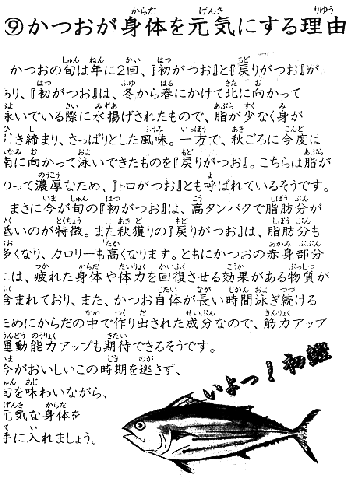 ⑨かつおが身体を元気にする理由
かつおの旬は年に2回、『初がつお』と『戻りがつお』が
あり、『初がつお』は、冬から春にかけて北に向かって
泳いでいる際に水揚げされたもので、脂が少なく身が
引き締まり、さっぱりとした風味。一方で、秋ごろに今度は
南に向かって泳いできたものを『戻りがつお』。こちらは脂が
のって濃厚なため、『トロがつお』とも呼ばれているそうです。
まさに今が旬の『初がつお』は、高タンパクで脂肪分が
低いのが特徴。また秋獲りの『戻りがつお』は、脂肪分も
多くなり、カロリーも高くなります。ともにかつおの赤身部分
には、疲れた身体や体力を回復させる効果がある物質が
含まれており、また、かつお自体が長い時間泳ぎ続ける
ためにからだの中で作り出された成分なので、筋力アップ
運動能力アップも期待できるそうです。
今がおいしいこの時期を逃さず、
旬を味わいながら、
元気な身体を
手に入れましょう。
いよっ!初鰹